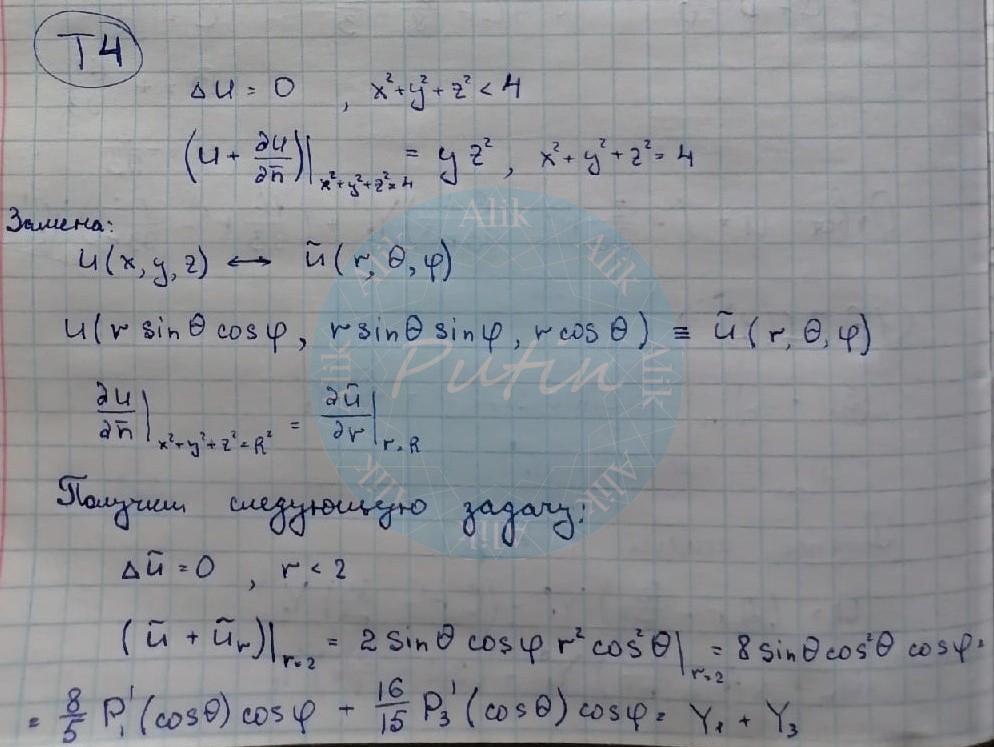 T4
Δu = 0 , x²+y²+z² < 4
(u + ∂u/∂n̄)|x²+y²+z²=4 = y z², x²+y²+z²=4
Замена:
u(x,y,z) ↔ ũ(r,θ,φ)
u(r sinθ cosφ, r sinθ sinφ, r cosθ) ≡ ũ(r,θ,φ)
∂u/∂n̄|x²+y²+z²=R² = ∂ũ/∂r|r=R
Получим следующую задачу:
Δũ = 0 , r < 2
(ũ + ũr)|r=2 = 2 sinθ cosφ r² cos²θ|r=2 = 8 sinθ cos²θ cosφ =
= 8/5 P₁¹(cosθ) cosφ + 16/15 P₃¹(cosθ) cosφ = Y₁ + Y₃
Alik
Alik
Alik
Alik
Alik
Alik
Alik
Alik
Putin